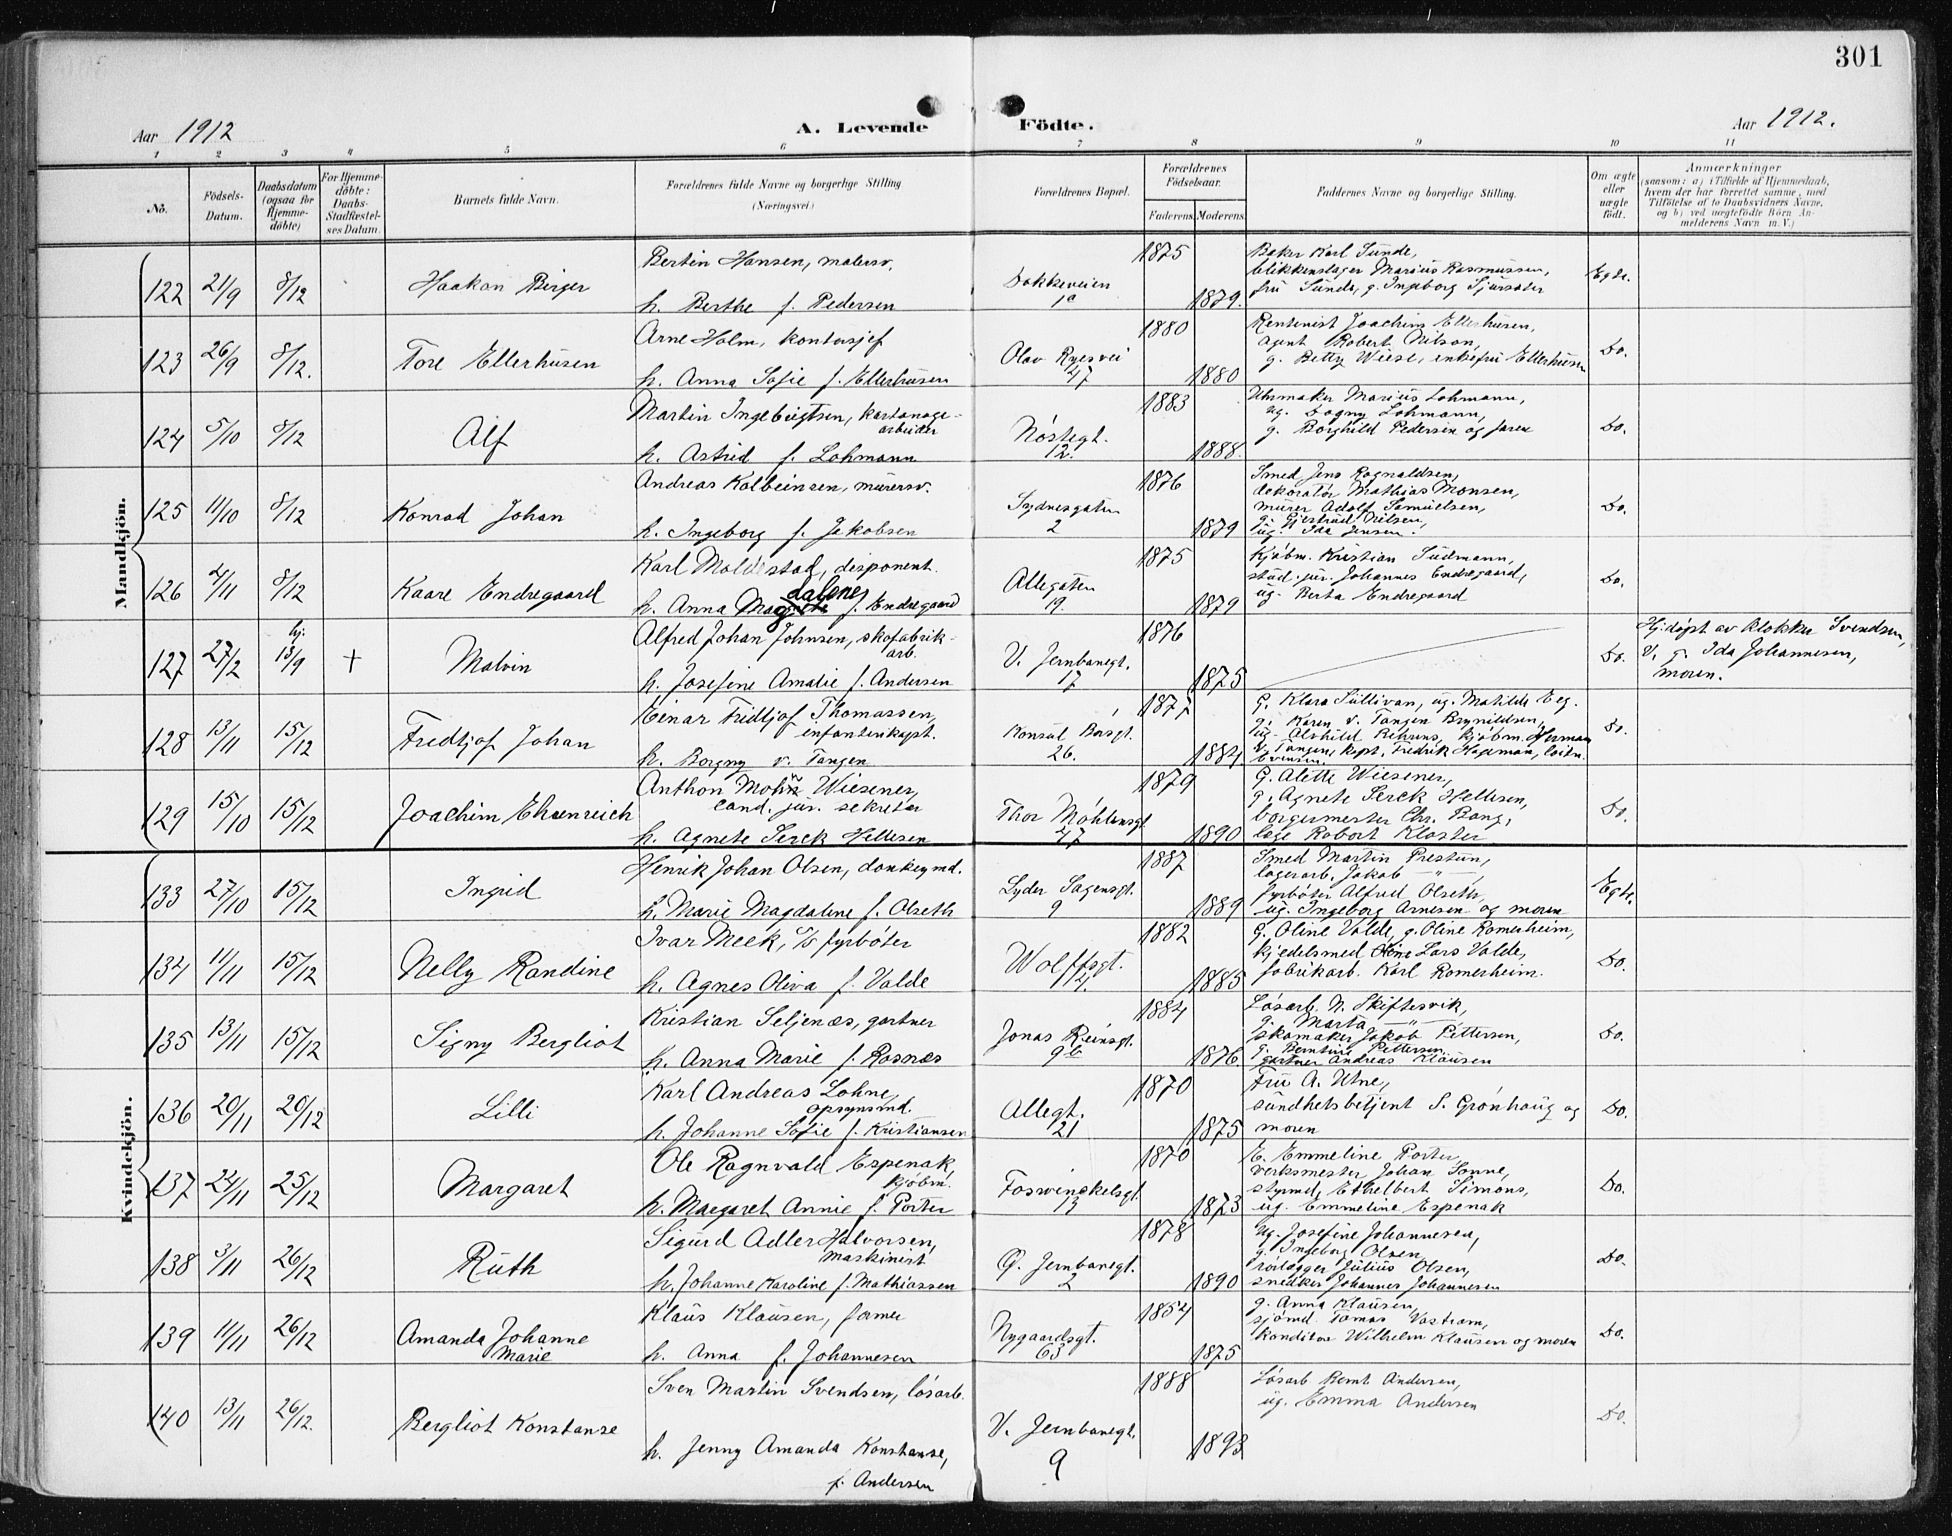 301
Aar 1912
A. Levende
Födte.
Aar 1912.
1 2 3 4 5 6 7 8 9 10 11
No.
Födsels-
Datum.
Daabsdatum
(ogsaa for
Hjemme-
döbte)
For Hjemme-
döbte:
Daabs-
Stadfæstel-
ses Datum.
Barnets fulde Navn.
Forældrenes fulde Navne og borgerlige Stilling
(Næringsvei.)
Forældrenes Bopæl.
Forældrenes
Födselsaar.
Faderens Moderens
Faddernes Navne og borgerlige Stilling.
Om ægte
eller
uægte
födt.
Anmærkninger
(saasom: a) i Tilfælde af Hjemmedaab,
hvem der har forrettet samme, med
Tilföielse af to Daabsvidners Navne,
og b) ved uægtefödte Börn An-
melderens Navn m. V.)
Mandkjön.
122 21/9 8/12 Haakon Birger
Bertin Hansen, malersv.
h. Berthe f. Pedersen
Dokkeveien
1a
1875
1879.
Baker Karl Sunde,
blikkenslager Marius Rasmussen,
fru Sunde, g. Ingeborg
Egte.
123 26/9 8/12. Tore Ellerhusen
Arne Holm, kontorsjef
h. Anna Sofie f. Ellerhusen
Olav Ryesvei
47
1880
1880
Rentenist Joachim Ellerhusen,
agent Robert Nilson,
g. Betty Wiese, enkefru Ellerhusen
Do.
124 5/10 8/12 Alf
Martin Ingebrigtsen, kartonage-
arbeider
h. Astrid f. Lohmann
Nöstegt.
12.
1883
1888.
Uhrmaker Marius Lohmann,
ug. Dagny Lohmann,
g. Borghild Pedersen og faren
Do.
125 11/10 8/12 Konrad Johan
Andreas Kolbeinsen, murersv.
h. Ingeborg f. Jakobsen
Sydnesgaten
2
1876
1879
Smed Jens Ragnaldsen,
dekoratör Mathias Monsen,
murer Adolf Samuelsen,
g. Gjertrud Nilsen,
ug. Ida Jensen.
Do.
126 2/11 8/12 Kaare Endregaard
Karl Moldestad, disponent.
dalene
h. Anna f. Endregaard
Allegaten
19.
1875
1879
Kjöbm. Kristian Sudmann,
stud. jur. Johannes Endregaard,
ug. Berta Endregaard
Do.
127 27/2 hj. 13/9 + Malvin
Alfred Johan Johnsen, skofabrik-
arb.
h. Josefine Amalie f. Andersen
V. Jernbanegt.
17
1876
1875
Do.
Hj.döpt av klokker Svendsen,
V. g. Ida Johannesen,
moren.
128 13/11 15/12 Fredtjof Johan
Einar Fridtjof Thomassen,
infanterikapt.
h. Borgny v. Tangen
Konsul Börsgt.
26.
1877
1884
G. Klara Sullivan, ug. Matilde Eeg.
g. Karen v. Tangen Brynildsen,
ug. Alvhild Behrens, kjöbm. Herman
v. Tangen, kapt. Fredrik Hageman, löitn.
Evensen.
Do.
129 15/10 15/12 Joachim Ehrenreich
Anthon Mohn Wiesener,
cand. jur. sekretær
h. Agnete Serck Heltesen
Thor Möhlensgt.
47
1879
1890
G. Alette Wiesener,
g. Agnete Serck Heltesen,
borgermester Chr. Bang,
læge Robert Kloster
Do.
Kvindekjön.
133 27/10 15/12 Ingrid
Henrik Johan Olsen, donkeymd.
h. Marie Magdalene f. Olseth
Lyder Sagensgt.
9
1887
1889
Smed Martin Prestun,
lagerarb. Jakob — " —,
fyrböter Alfred Olseth,
ug. Ingeborg Arnesen og moren
Egte.
134 11/11 15/12 Nelly Randine
Ivar Meek, fyrböter
h. Agnes Oliva f. Valde
Wolffsgt.
14.
1882
1885
G. Oline Valde, g. Oline Romerheim,
kjedelsmed Lars Valde,
fabrikarb. Karl Romerheim.
Do.
135 13/11 15/12 Signy Bergliot
Kristian Seljenæs, gartner
h. Anna Marie f. Rosnæs
Jonas Reinsgt.
9b
1884
1876.
Lösarb. N. Skiftesvik,
g. Marta — " —,
skomaker Jakob Pettersen,
g. Berntine Pettersen,
gartner Andreas Klausen
Do.
136 20/11 20/12 Lilli
Karl Andreas Lohne,
opsynsmd.
h. Johanne Sofie f. Kristiansen
Allegt.
21
1870
1875
Fru A. Utne,
sundhetsbetjent S. Grönhaug og
moren
Do.
137 24/11 25/12 Margaret
Ole Ragnvald Espenak,
kjöbm.
h. Margaret Annie f. Porter
Fosvinckelsgt.
13
1870
1873
E. Emmeline Porter,
verksmester Johan Sonne,
styrmd. Ethelbert Simons,
ug. Emmeline Espenak
Do.
138 3/11 26/12 Ruth
Sigurd Adler Halvorsen,
maskinist
h. Johanne Karoline f. Mathiassen
Ö. Jernbanegt.
2
1878
1890
Ug. Josefine Johannesen,
g. Ingeborg Olsen,
rörlægger Julius Olsen,
snedker Johannes Johannesen
Do.
139 11/11 26/12 Amanda Johanne
Marie
Klaus Klausen, former
h. Anna f. Johannesen
Nygaardsgt.
63
1854
1875
g. Anna Klausen,
sjömd. Tomas Vastram,
konditor Wilhelm Klausen og moren
Do.
140 13/11 26/12. Bergliot Konstanse
Sven Martin Svendsen, lösarb.
h. Jenny Amanda Konstanse,
f. Andersen
V. Jernbanegt.
9
1888
1893
Lösarb Bernt Andersen,
ug. Emma Andersen
Do.